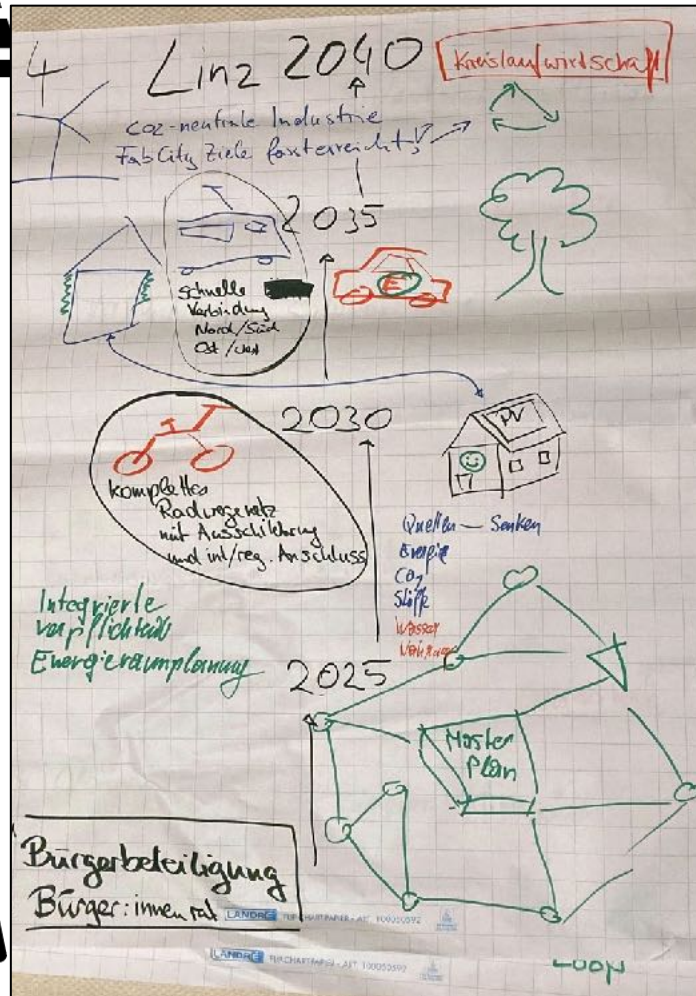 4
Linz 2040
Kreislaufwirtschaft
CO2-neutrale Industrie
FabCity Ziele
2035
E
schnelle
Verbindung
Nord/Süd
Ost/West
2030
PV
komplettes
Radwegenetz
mit Ausschilderung
und int/reg. Anschluss
Quellen – Senken
Energie
CO2
Stoffe
Wasser
Integrierte
Energieraumplanung
2025
Master
Plan
Bürgerbeteiligung
Bürger:innenrat
LANDRÉ FLIPCHARTPAPIER - ART. 100050592
LANDRÉ FLIPCHARTPAPIER - ART. 100050592
Loop